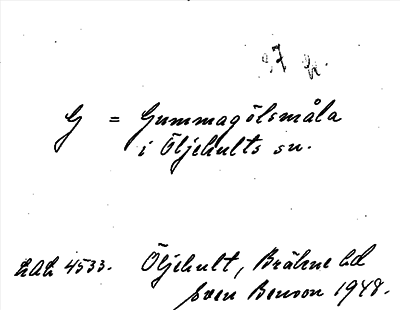 G = Gummagölsmåla
i Öljehults sn.
LAL 4533. Öljehult, Bräkne hd
Sven Benson 1948.